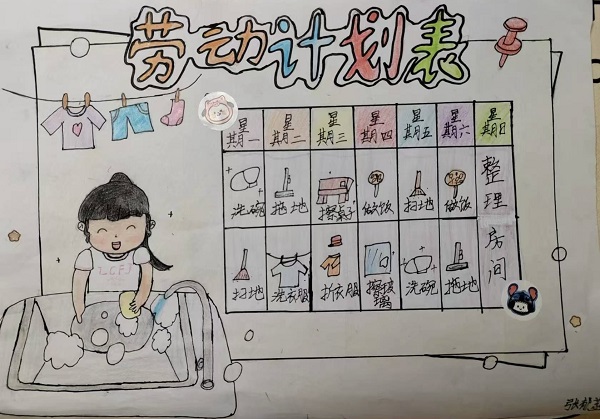 劳动计划表
星期一 星期二 星期三 星期四 星期五 星期六 星期日
洗碗 拖地 擦桌子 做饭 扫地 做饭 整理房间
扫地 洗衣服 折衣服 擦玻璃 洗碗 拖地